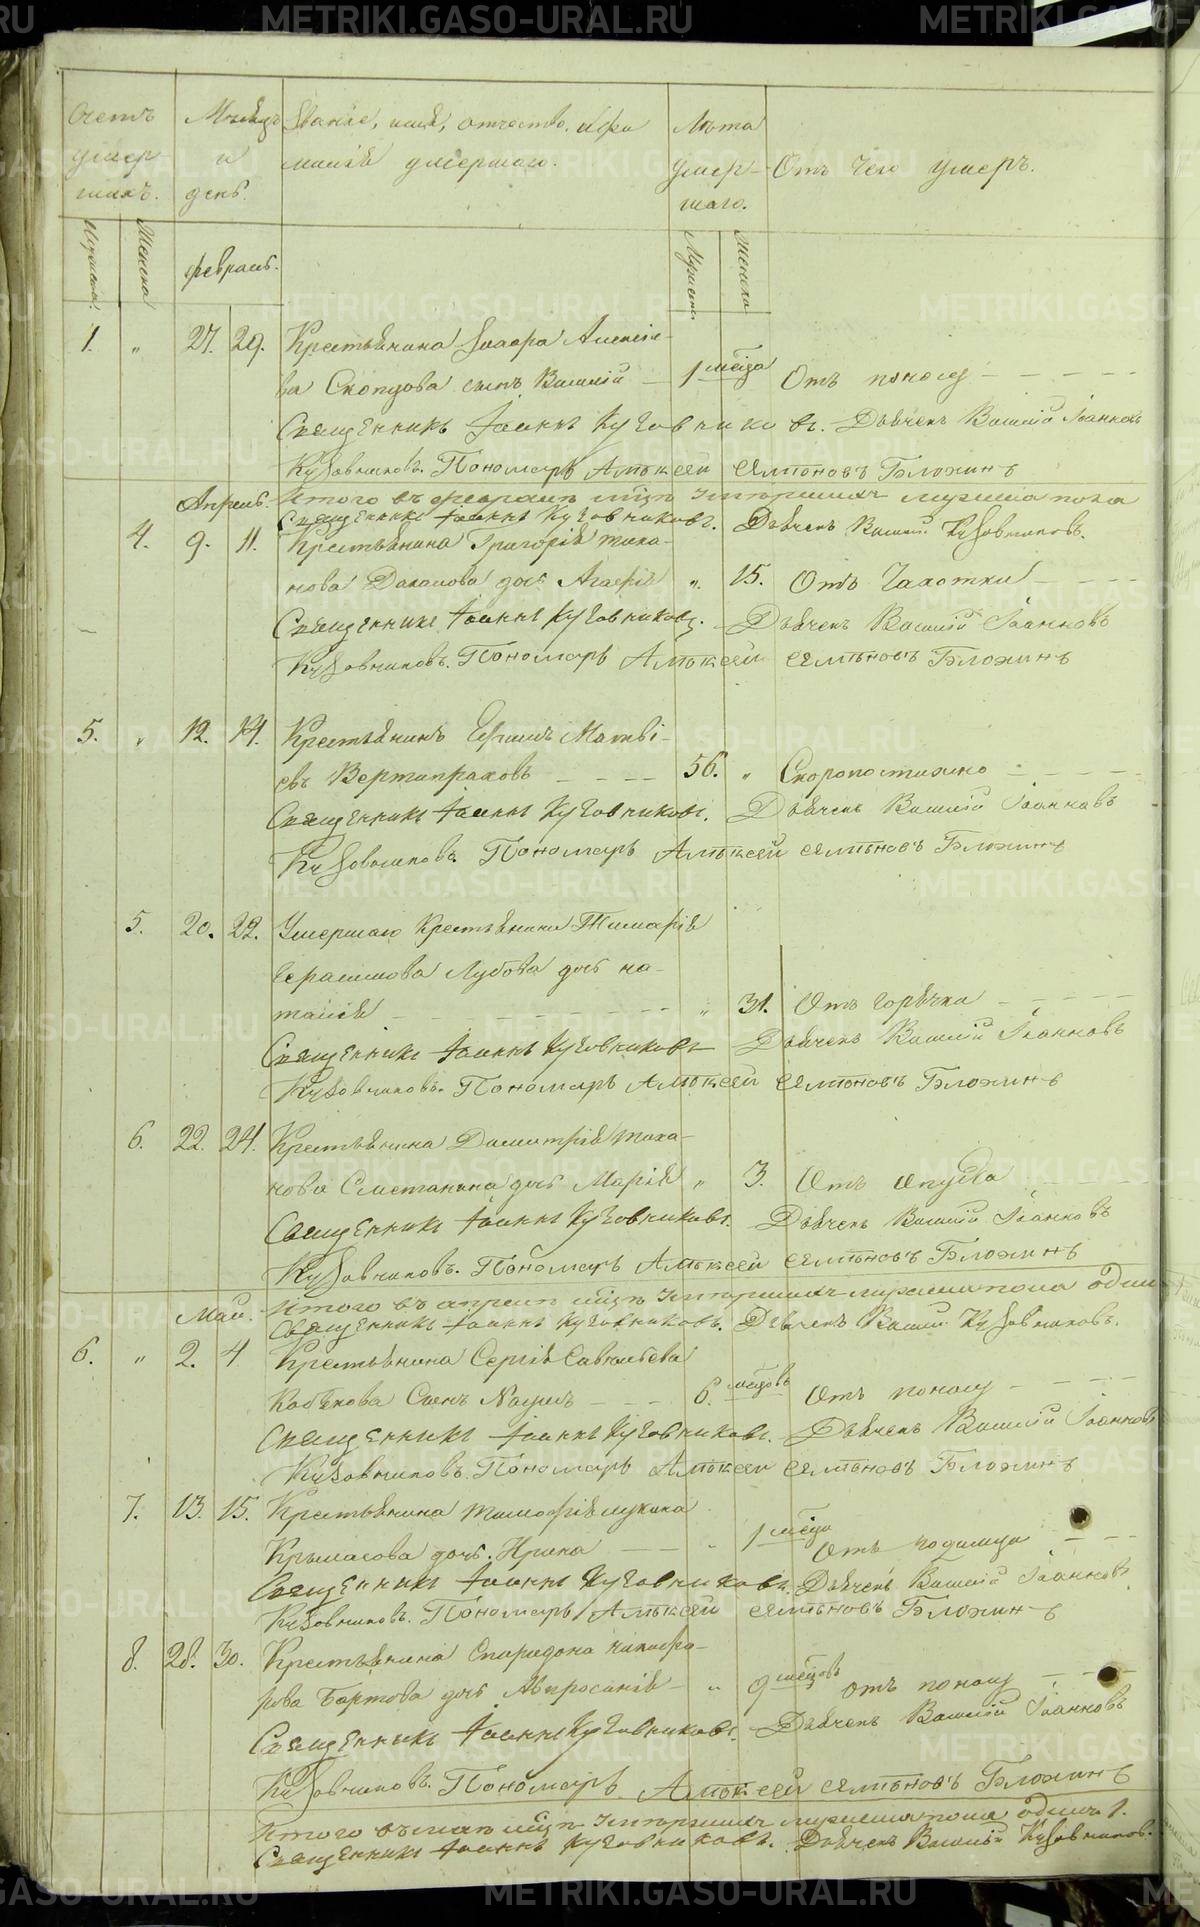 METRIKI.GASO-URAL.RU
Счетъ умер- шихъ.
Мѣсяцъ и день.
Званіе, имя, отчество и фа
милія умершаго.
Лѣта умер- шаго.
Отъ чего умеръ.
Мужеска.
Женска
Февраль.
Мужеска
Женска
1. „ 27. 29. Крестьянина Алексіе-
ва сынъ Василій — 1 мѣсяца Отъ поносу
Священникъ Іоаннъ Кузовниковъ. Дьячекъ Василій Іоанновъ
Кузовниковъ. Пономарь Алексѣй Семеновъ Блохинъ
Апрель. Итого въ феврале месяце умершихъ мужеска пола
Священникъ Іоаннъ Кузовниковъ. Дьячекъ Василій Кузовниковъ.
4. 9. 11. Крестьянина Григорія
дочь Агафія „ 15. Отъ Чахотки
Священникъ Іоаннъ Кузовниковъ. Дьячекъ Василій Іоанновъ
Кузовниковъ. Пономарь Алексѣй Семеновъ Блохинъ
5. „ 12. 14. Крестьянинъ Ефимъ Матвѣі-
евъ Вертипраховъ 56. „ Скоропостижно
Священникъ Іоаннъ Кузовниковъ. Дьячекъ Василій Іоанновъ
Кузовниковъ. Пономарь Алексѣй Семеновъ Блохинъ
5. 20. 22. Умершаго Крестьянина
Герасимова дочь На-
талія „ 31. Отъ горячки
Священникъ Іоаннъ Кузовниковъ Дьячекъ Василій Іоанновъ
Кузовниковъ. Пономарь Алексѣй Семеновъ Блохинъ
6. 22. 24. Крестьянина Димитрія
Сметанина дочь Марія „ 3. Отъ
Священникъ Іоаннъ Кузовниковъ. Дьячекъ Василій Іоанновъ
Кузовниковъ. Пономарь Алексѣй Семеновъ Блохинъ
Май. Итого въ апреле месяце умершихъ мужеска пола одинъ
Священникъ Іоаннъ Кузовниковъ. Дьячекъ Василій Кузовниковъ.
6. „ 2. 4. Крестьянина Сергія Савельева
Сынъ 6. мѣсяцовъ Отъ поносу
Священникъ Іоаннъ Кузовниковъ. Дьячекъ Василій Іоанновъ
Кузовниковъ. Пономарь Алексѣй Семеновъ Блохинъ
7. 13. 15. Крестьянина Тимофія
дочь Ирина „ 1 мѣсяца Отъ родимца
Священникъ Іоаннъ Кузовниковъ. Дьячекъ Василій Іоанновъ
Кузовниковъ. Пономарь Алексѣй Семеновъ Блохинъ
8. 28. 30. Крестьянина Спиридона Никифо-
рова дочь „ 9 мѣсяцовъ отъ поносу
Священникъ Іоаннъ Кузовниковъ. Дьячекъ Василій Іоанновъ
Кузовниковъ. Пономарь Алексѣй Семеновъ Блохинъ
Итого въ мае месяце умершихъ мужеска пола одинъ 1.
Священникъ Іоаннъ Кузовниковъ. Дьячекъ Василій Кузовниковъ.